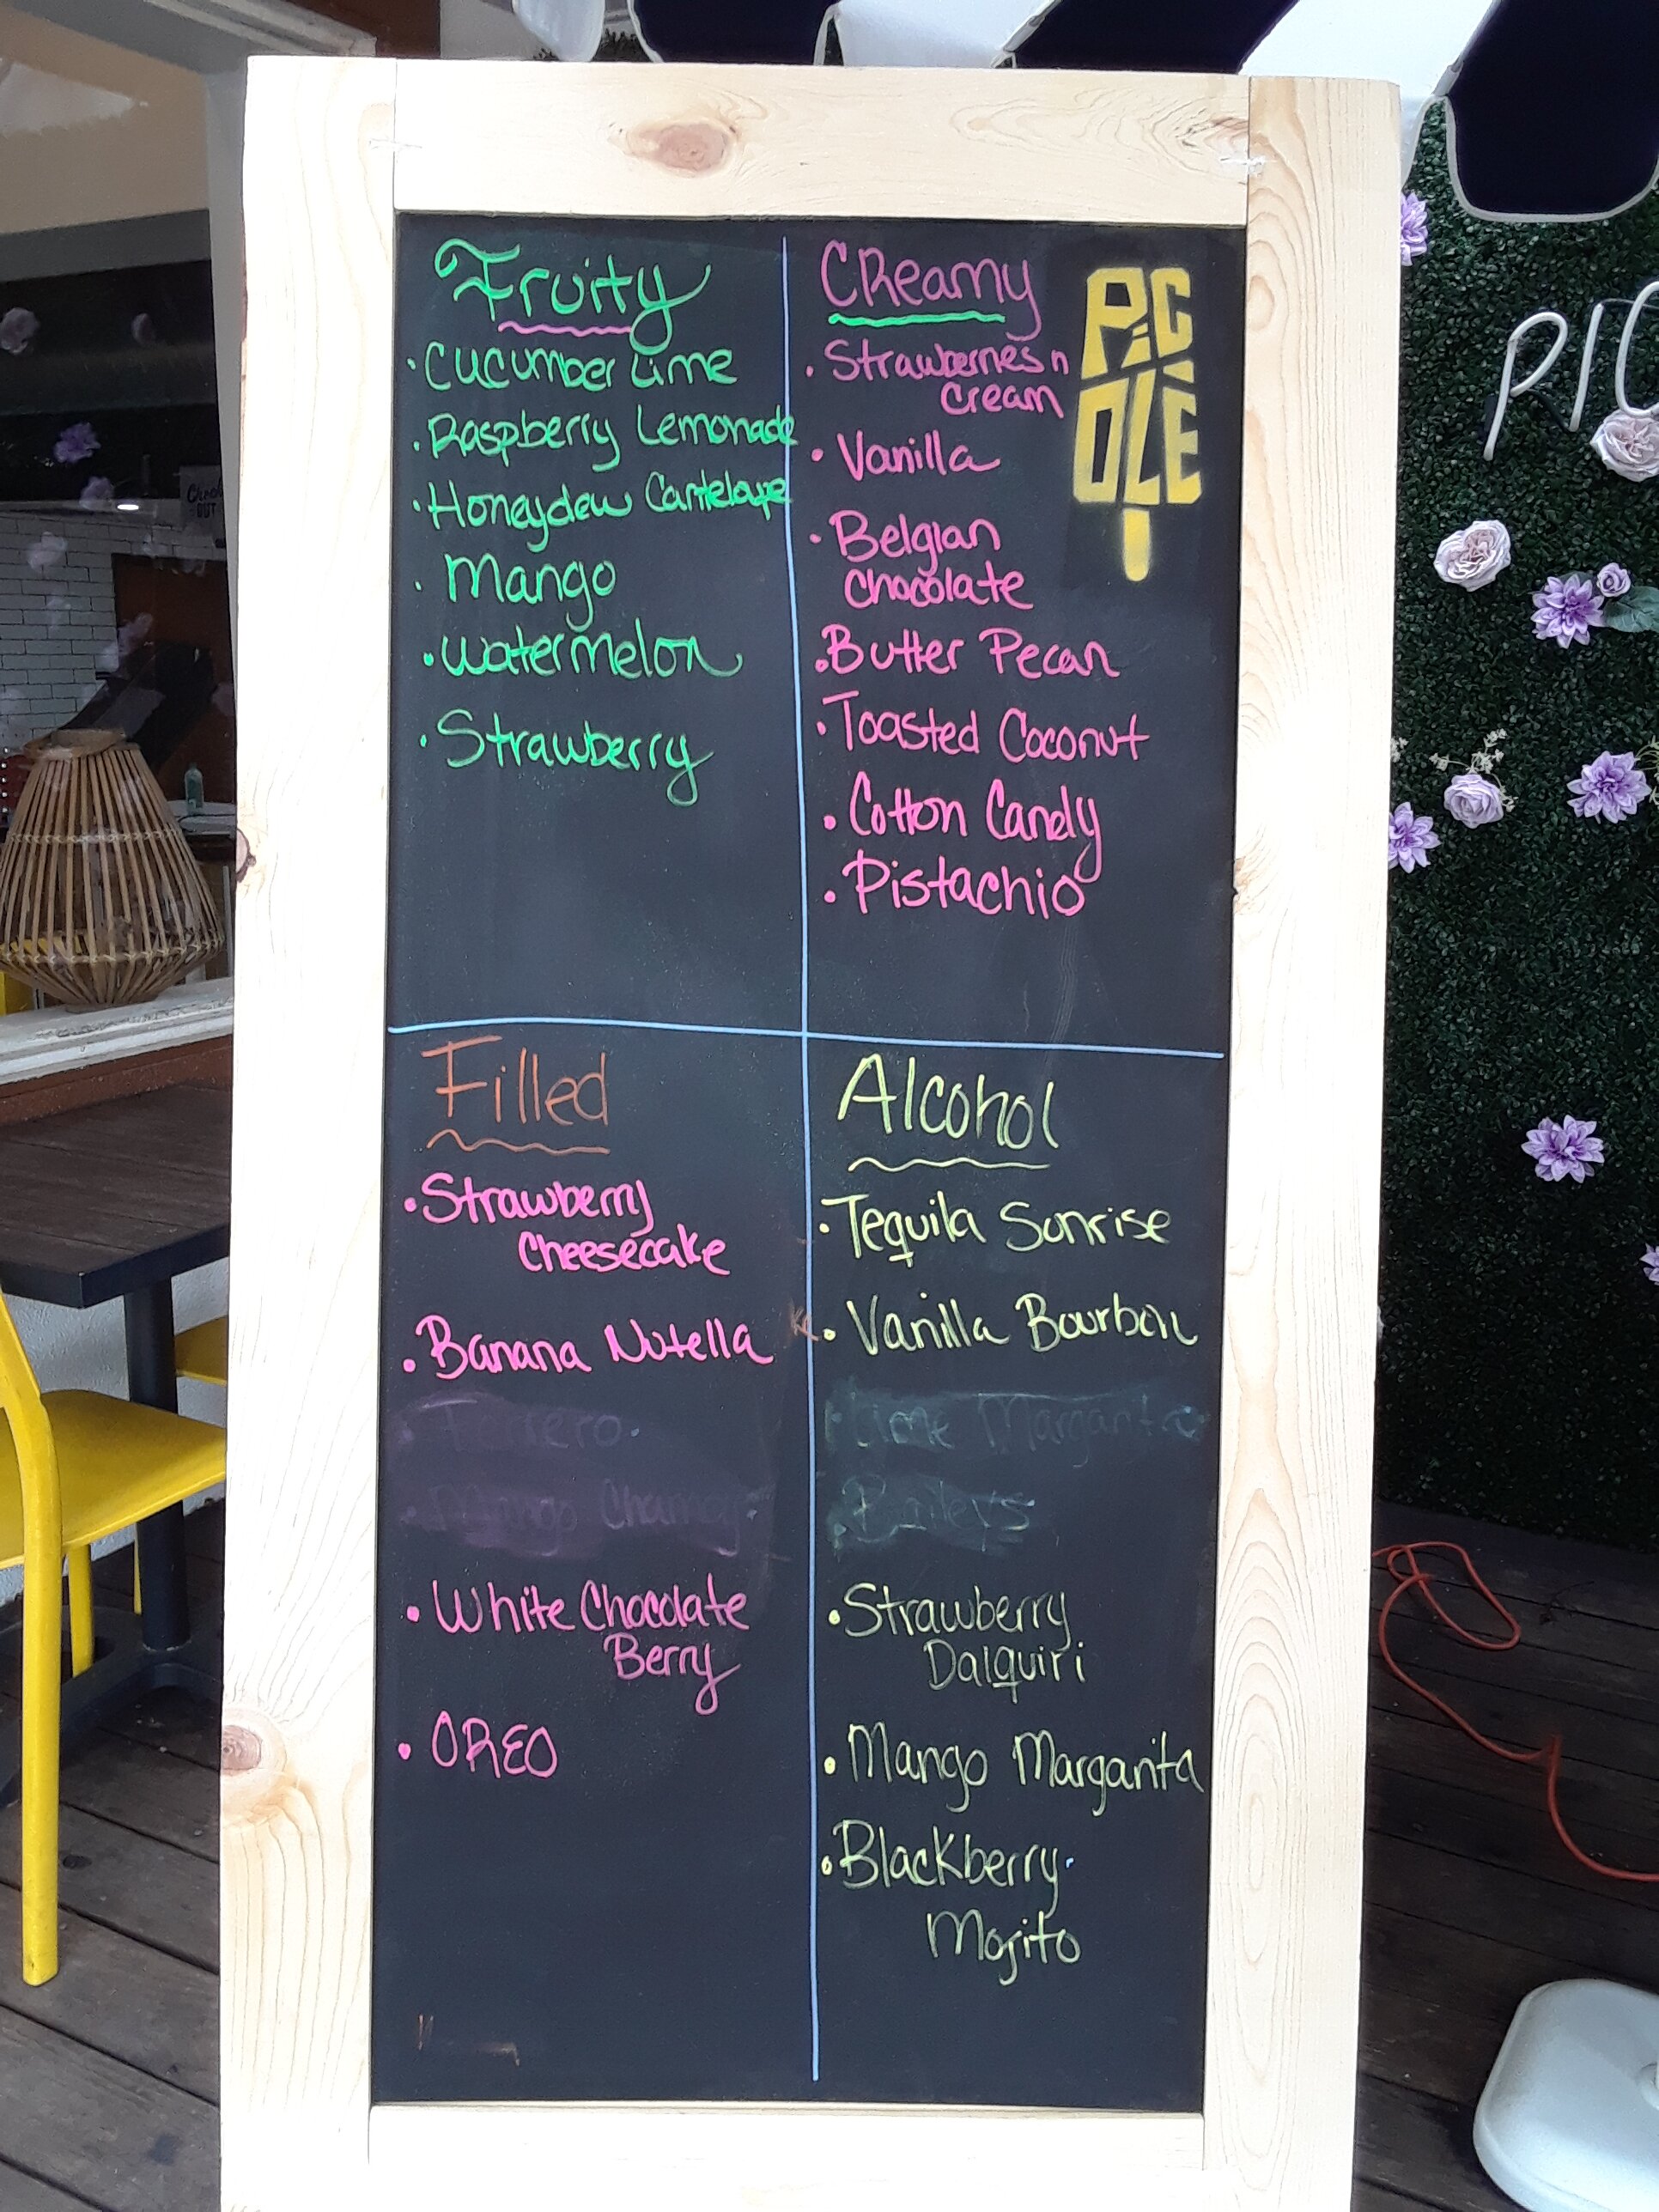 Fruity
• Cucumber Lime
• Raspberry Lemonade
• Honeydew Cantelope
• Mango
• Watermelon
• Strawberry
Creamy
• Strawberries n
Cream
• Vanilla
• Belgian
Chocolate
• Butter Pecan
• Toasted Coconut
• Cotton Candy
• Pistachio
PIC
OLE
PIC
Filled
• Strawberry
Cheesecake
• Banana Nutella
• Ferrero
• Mango
• White Chocolate
Berry
• OREO
Alcohol
• Tequila Sunrise
• Vanilla Bourbon
• Lime Margarita
• Baileys
• Strawberry
Daiquiri
• Mango Margarita
• Blackberry
Mojito